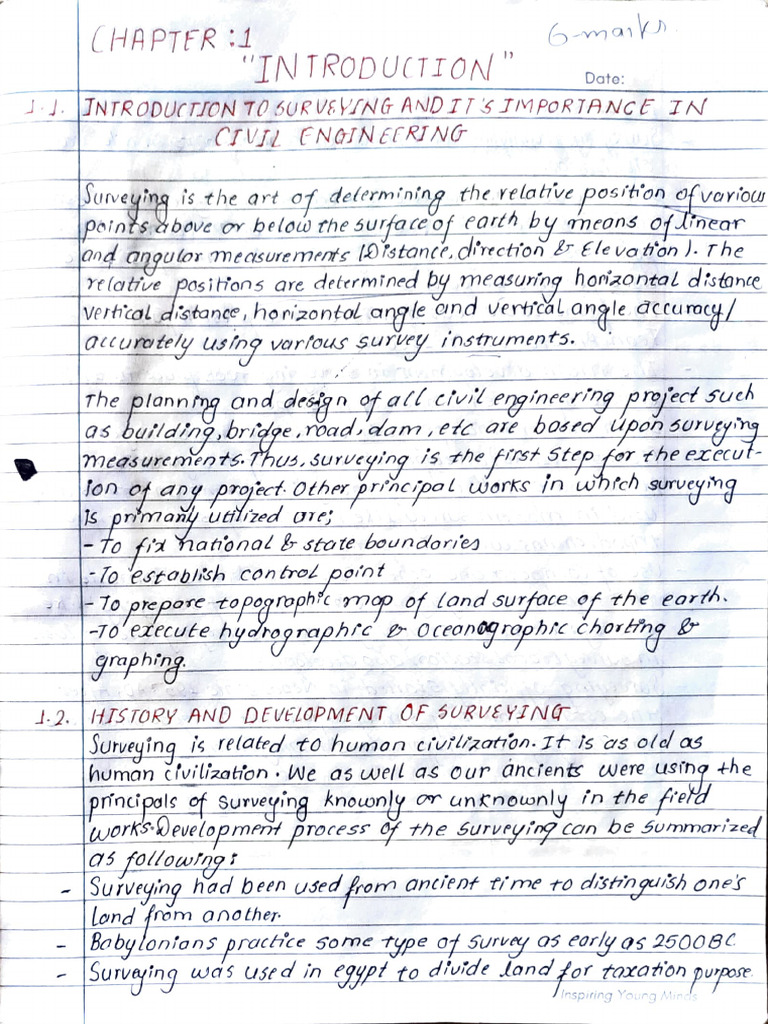 CHAPTER:1
6-marks.
"INTRODUCTION"
Date:
1.1. INTRODUCTION TO SURVEYING AND IT'S IMPORTANCE IN
CIVIL ENGINEERING
Surveying is the art of determining the relative position of various
points above or below the surface of earth by means of linear
and angular measurements (Distance, direction & Elevation). The
relative positions are determined by measuring horizontal distance
vertical distance, horizontal angle and vertical angle accuracy/
accurately using various survey instruments.
The planning and design of all civil engineering project such
as building, bridge, road, dam, etc are based upon surveying
measurements. Thus, surveying is the first step for the execut-
ion of any project. Other principal works in which surveying
is primarily utilized are;
- To fix national & state boundaries
- To establish control point
- To prepare topographic map of land surface of the earth.
- To execute hydrographic & Oceanographic charting &
graphing.
1.2. HISTORY AND DEVELOPMENT OF SURVEYING
Surveying is related to human civilization. It is as old as
human civilization. We as well as our ancients were using the
principals of surveying knownly or unknownly in the field
works. Development process of the surveying can be summarized
as following:
- Surveying had been used from ancient time to distinguish one's
land from another.
- Babylonians practice some type of survey as early as 2500BC.
- Surveying was used in egypt to divide land for taxation purpose.
Inspiring Young Minds